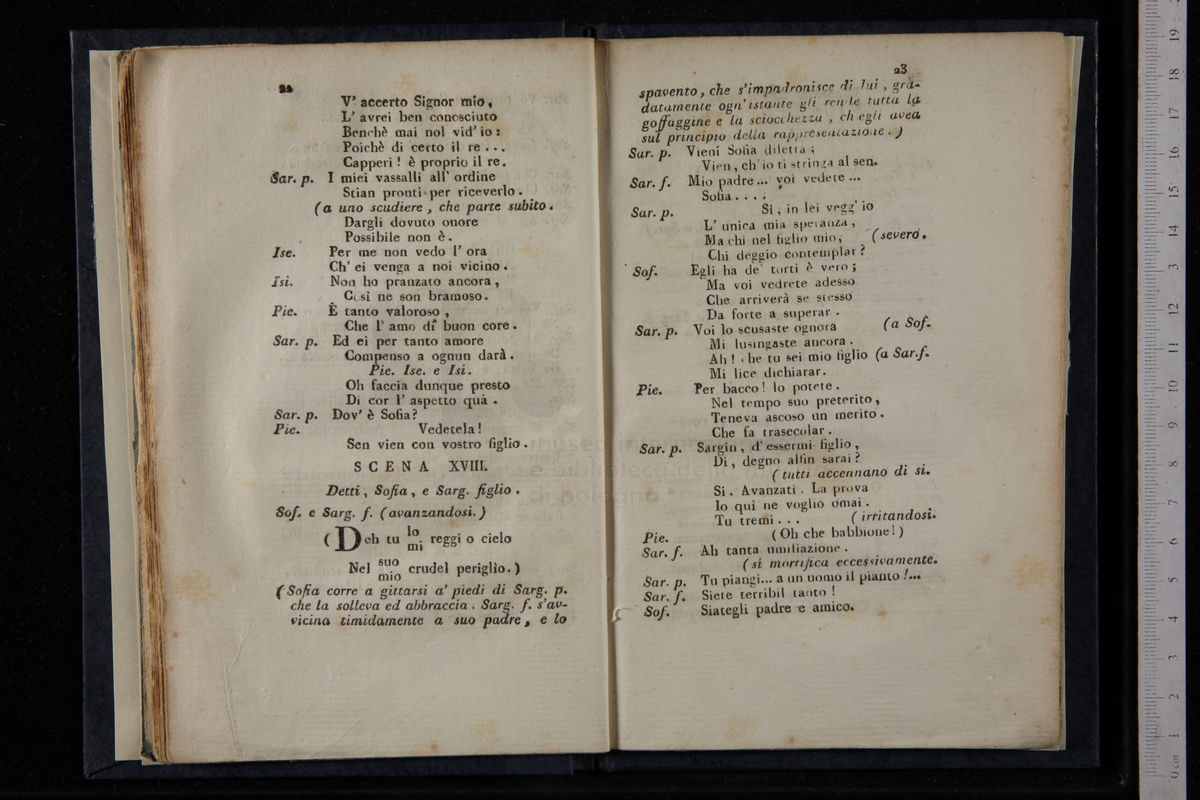 22
V' accerto Signor mio,
L' avrei ben conosciuto
Benchè mai nol vid' io:
Poichè di certo il re ...
Capperi! è proprio il re.
Sar. p. I miei vassalli all' ordine
Stian pronti per riceverlo.
(a uno scudiere, che parte subito.
Dargli dovuto onore
Possibile non è.
Ise. Per me non vedo l' ora
Ch' ei venga a noi vicino.
Isi. Non ho pranzato ancora,
Così ne son bramoso.
Pie. È tanto valoroso,
Che l' amo di buon core.
Sar. p. Ed ei per tanto amore
Compenso a ognun darà.
Pie. Ise. e Isi.
Oh faccia dunque presto
Di cor l' aspetto quà.
Sar. p. Dov' è Sofia?
Pie. Vedetela!
Sen vien con vostro figlio.
SCENA XVIII.
Detti, Sofia, e Sarg. figlio.
Sof. e Sarg. f. (avanzandosi.)
(Deh tu lo/mi reggi o cielo
Nel suo/mio crudel periglio.)
(Sofia corre a gittarsi a' piedi di Sarg. p.
che la solleva ed abbraccia. Sarg. f. s'av-
vicina timidamente a suo padre, e lo
23
spavento, che s'impadronisce di lui, gra-
datamente ogn' istante gli rende tutta la
goffaggine e la sciocchezza, ch'egli avea
sul principio della rappresentazione.)
Sar. p. Vieni Sofia diletta;
Vien, ch' io ti stringa al sen.
Sar. f. Mio padre... voi vedete ...
Sofia....
Sar. p. Sì, in lei vegg' io
L' unica mia speranza,
Ma chi nel figlio mio, (severo.
Chi deggio contemplar?
Sof. Egli ha de' torti è vero;
Ma voi vedrete adesso
Che arriverà se stesso
Da forte a superar.
Sar. p. Voi lo scusaste ognora (a Sof.
Mi lusingaste ancora.
Ah! che tu sei mio figlio (a Sar.f.
Mi lice dichiarar.
Pie. Per bacco! lo potete.
Nel tempo suo preterito,
Teneva ascoso un merito.
Che fa trasecolar.
Sar. p. Sargin, d' essermi figlio,
Di, degno alfin sarai?
(tutti accennano di si.
Si. Avanzati. La prova
Io quì ne voglio omai.
Tu tremi... (irritandosi.
Pie. (Oh che babbione!)
Sar. f. Ah tanta umiliazione.
(si mortifica eccessivamente.
Sar. p. Tu piangi... a un uomo il pianto!...
Sar. f. Siete terribil tanto!
Sof. Siategli padre e amico.